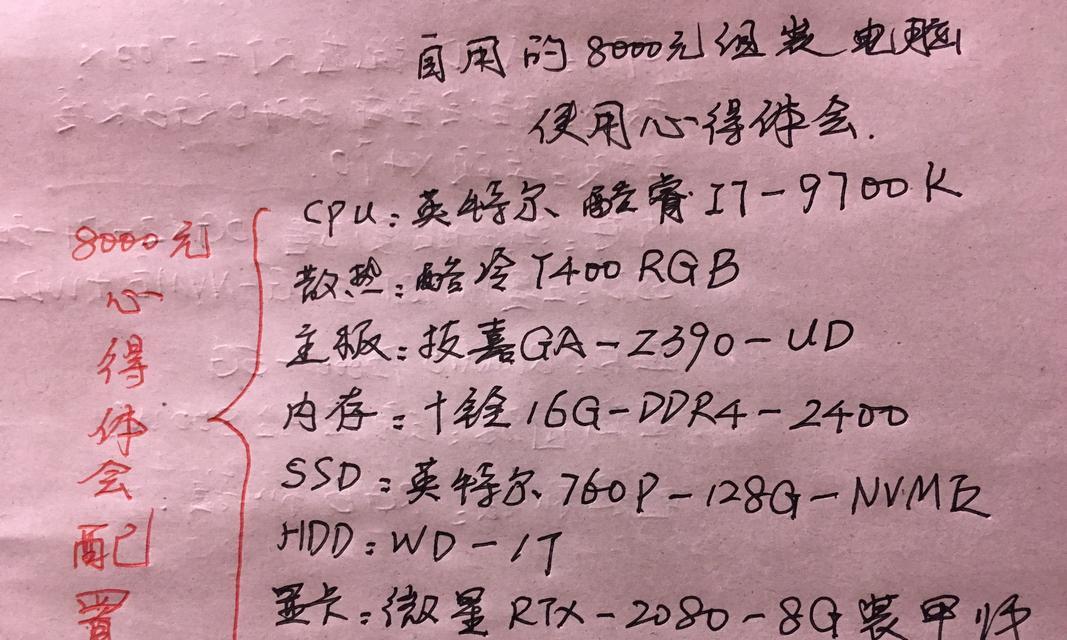 自用的8000元组装电脑
使用心得体会.
CPU:英特尔酷睿I7-9700K
散热:酷冷T400RGB
主板:技嘉GA-Z390-UD
内存:十铨16G-DDR4-2400
SSD:英特尔760P-128G-NVME
HDD:WD-1T
显卡:微星RTX-2080-8G装甲师
8000元
心
得
体
会
配
置